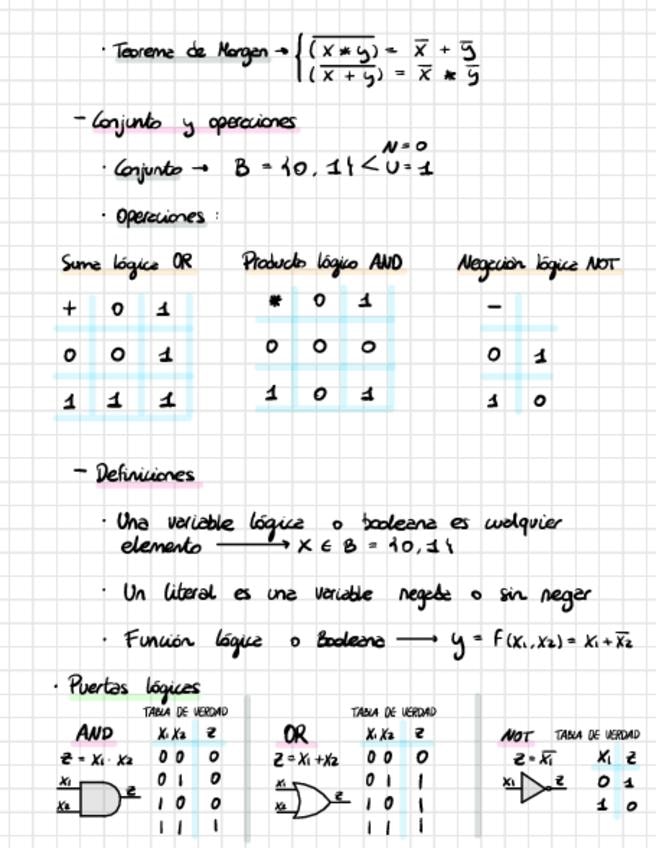 · Teorema de Morgan → { (x * y)‾ = x̅ + y̅
(x + y)‾ = x̅ * y̅
- Conjunto y operaciones
· Conjunto → B = {0, 1} < N = 0
U = 1
· Operaciones :
Suma lógica OR
+ 0 1
0 0 1
1 1 1
Producto lógico AND
* 0 1
0 0 0
1 0 1
Negación lógica NOT
-
0 1
1 0
- Definiciones
· Una variable lógica o booleana es cualquier
elemento ⟶ X ∈ B = {0, 1}
· Un literal es una variable negada o sin negar
· Función lógica o Booleana ⟶ y = f(x₁, x₂) = x₁ + x̅₂
· Puertas lógicas
AND
Z = X₁ · X₂
X₁
X₂
Z
TABLA DE VERDAD
X₁ X₂ Z
0 0 0
0 1 0
1 0 0
1 1 1
OR
Z = X₁ + X₂
X₁
X₂
Z
TABLA DE VERDAD
X₁ X₂ Z
0 0 0
0 1 1
1 0 1
1 1 1
NOT
Z = X̅₁
X₁
Z
TABLA DE VERDAD
X₁ Z
0 1
1 0